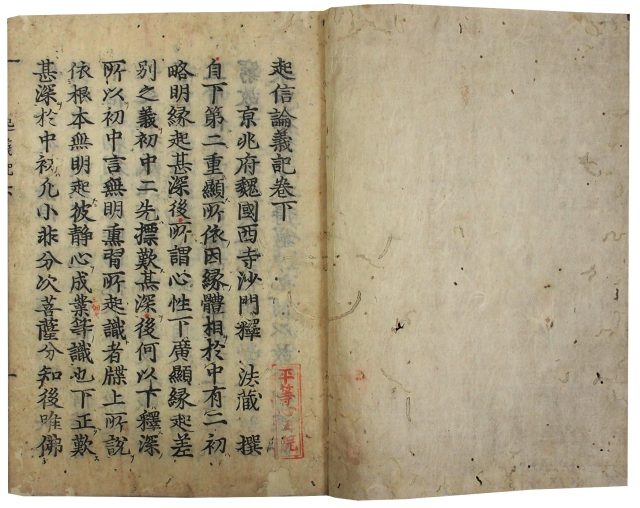 起信論義記卷下
京兆府魏國西寺沙門釋 法藏 撰
自下第二重顯所依因緣體相於中有二初
略明緣起甚深後所謂心性下廣顯緣起差
別之義初中二先摽歎甚深後何以下釋深
所以初中言無明熏習所起識者牒上所說
依根本無明起彼静心成業等識也下正歎
甚深於中初凡小非分次菩薩分知後唯佛